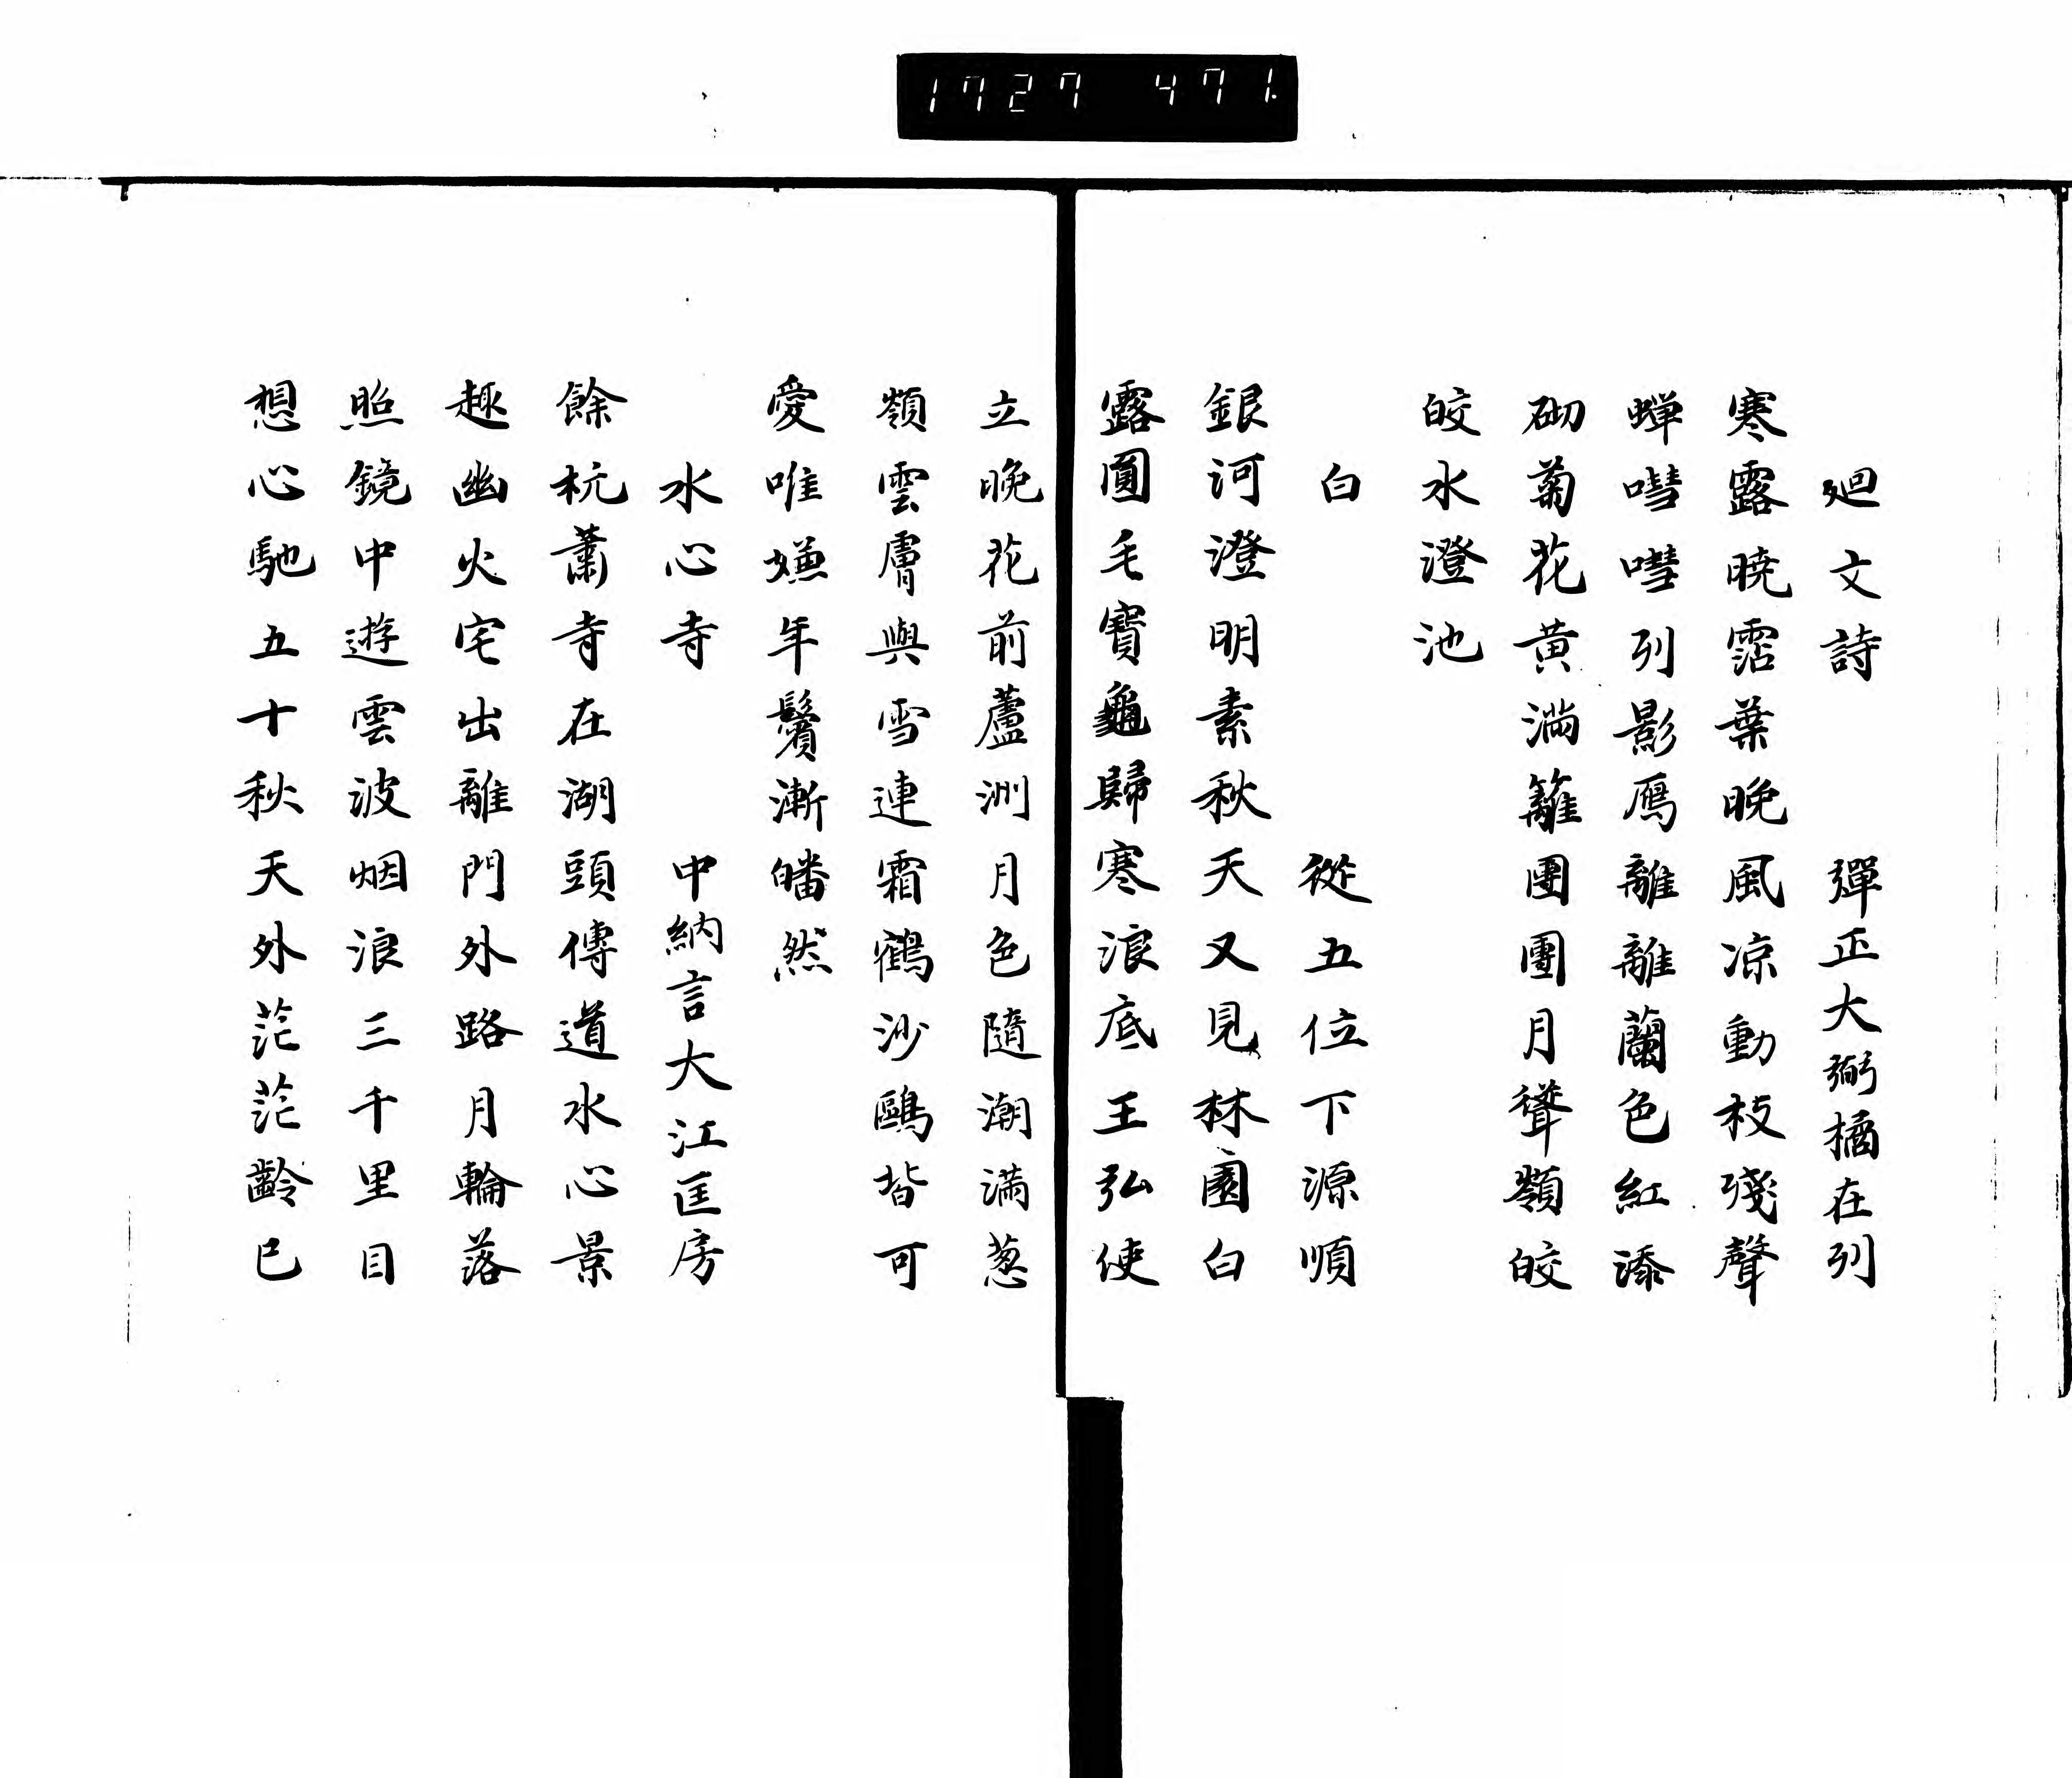 1727 471
廻文詩 彈正大弼橘在列
寒露曉霑葉晚風凉動枝殘聲
蟬嘒嘒列影鴈離離蘭色紅添
砌菊花黃滿籬團團月聳嶺皎
皎水澄池
白 從五位下源順
銀河澄明素秋天又見林園白
露圓毛寶龜歸寒浪底王弘使
立晚花前蘆洲月色隨潮滿葱
嶺雲膚與雪連霜鶴沙鷗皆可
愛唯嫌年鬢漸皤然
水心寺 中納言大江匡房
餘杭蕭寺在湖頭傳道水心景
趣幽火宅出離門外路月輪落
照鏡中遊雲波烟浪三千里目
想心馳五十秋天外茫茫齡已